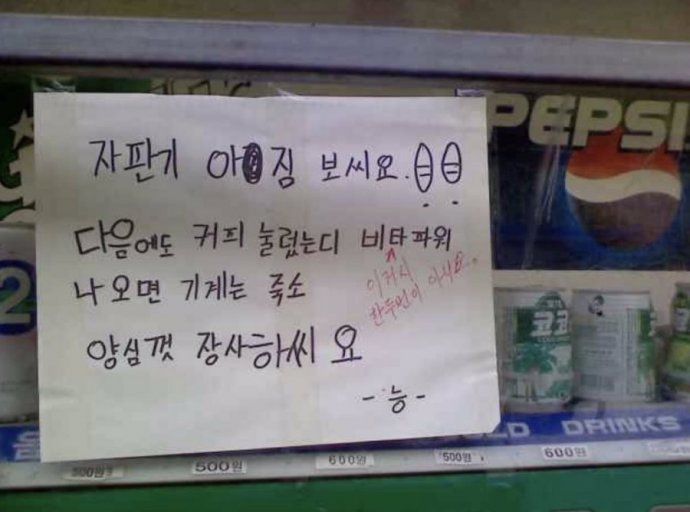 자판기 아짐 보씨요.
다음에도 커피 눌렀는디 비타파워
나오면 기계는 죽소
이거시 한두번이 아시요.
양심껏 장사하씨요
-능-
PEPSI
2
코코
COLD DRINKS
500원
500원
600원
500원
600원